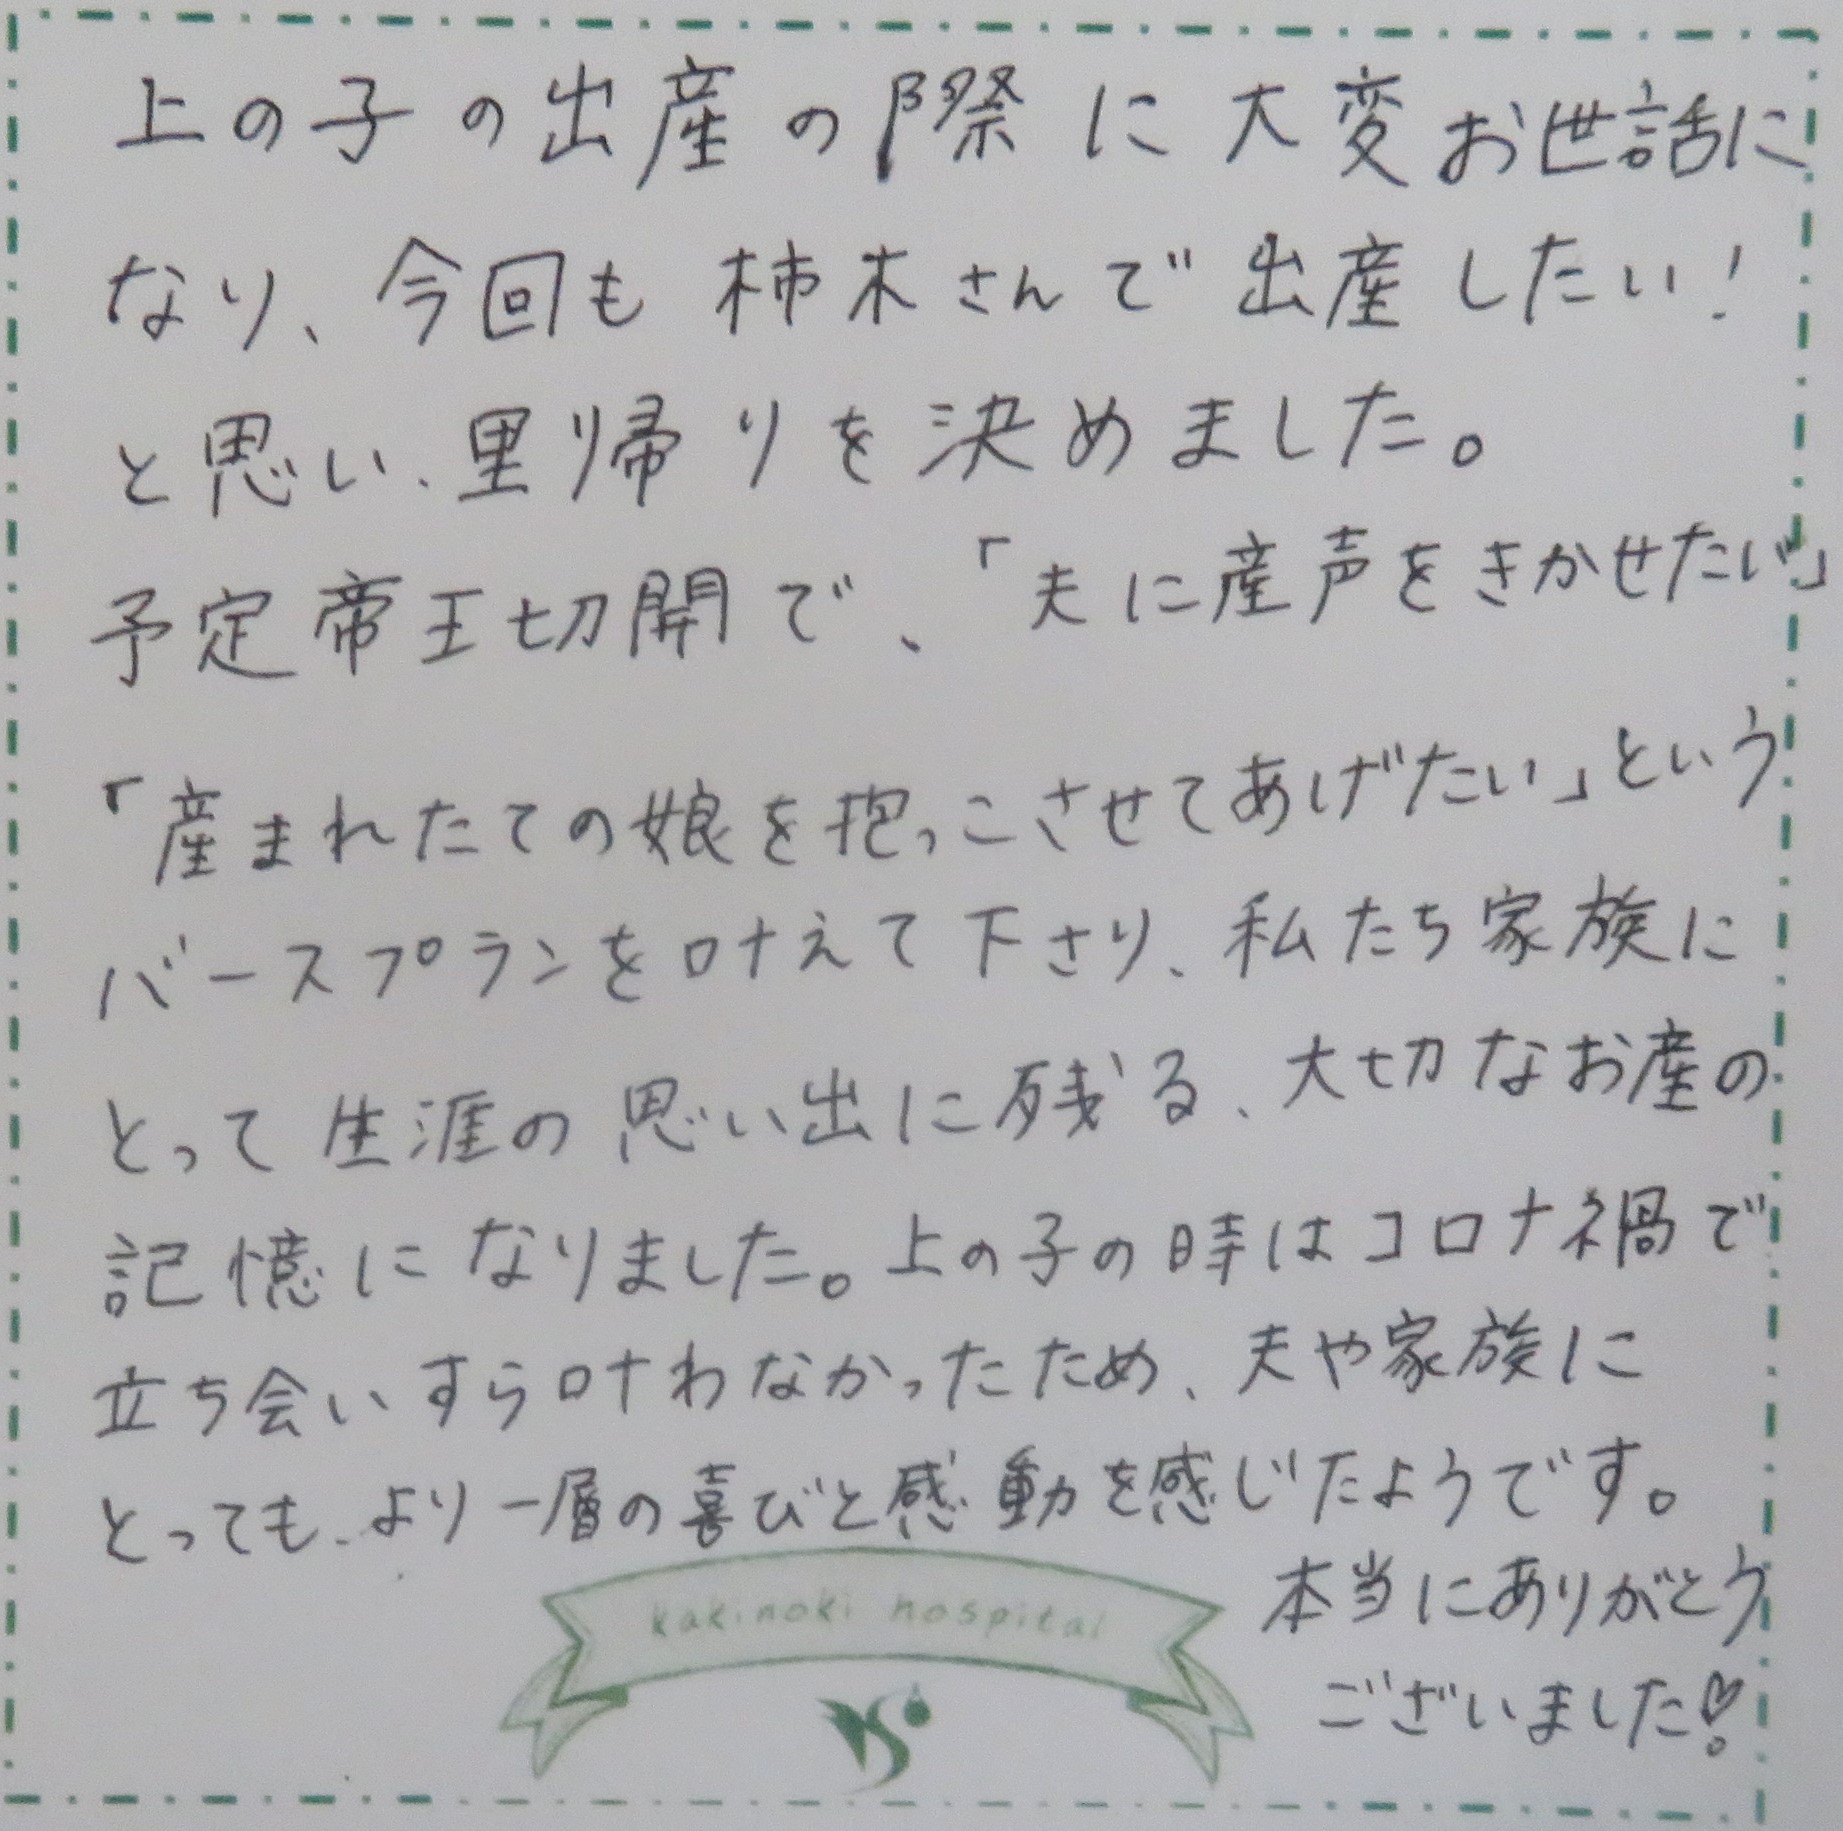 上の子の出産の際に大変お世話に
なり、今回も柿木さんで出産したい!
と思い、里帰りを決めました。
予定帝王切開で、「夫に産声をきかせたい」
「産まれたての娘を抱っこさせてあげたい」という
バースプランを叶えて下さり、私たち家族に
とって生涯の思い出に残る、大切なお産の
記憶になりました。上の子の時はコロナ禍で
立ち会いすら叶わなかったため、夫や家族に
とっても、より一層の喜びと感動を感じたようです。
本当にありがとう
ございました♡
kakinoki hospital